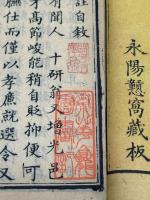 永陽窩藏板
註自敘
有聞人十研翁又增光邑
高節峻能稍自貶抑便可
仕而僅以孝廉就選令又